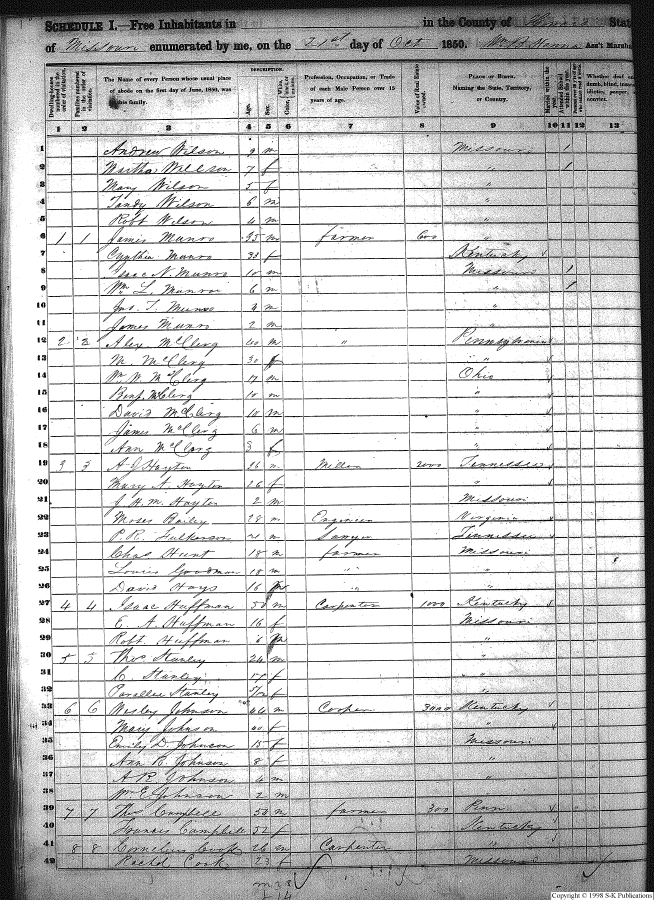 SCHEDULE I.—Free Inhabitants in in the County of State
of Missouri enumerated by me, on the 21st day of Oct 1850. Wm B. Hanna Ass't Marshal
Dwelling-houses numbered in the order of visitation.
Families numbered in the order of visitation.
The Name of every Person whose usual place of abode on the first day of June, 1850, was in this family.
DESCRIPTION.
Age.
Sex.
Profession, Occupation, or Trade of each Male Person over 15 years of age.
Value of Real Estate owned.
Place of Birth. Naming the State, Territory, or Country.
Married within the year.
Attended School within the year.
Whether deaf and dumb, blind, insane, idiotic, pauper, or convict.
1 2 3 4 5 6 7 8 9 10 11 12 13
1 Andrew Wilson 9 m Missouri 1
2 Martha Willson 7 f " 1
3 Mary Wilson 5 f "
4 Tandy Wilson 6 m "
5 Robt Wilson 4 m "
6 1 1 James Munro 35 m farmer 600 "
7 Cynthia Munro 33 f Kentucky
8 Isaac N. Munro 10 m Missouri 1
9 Wm L. Munroe 6 m " 1
10 Jas. T. Munro 4 m "
11 James Munro 2 m "
12 2 2 Alex McClerg 40 m " Pennsylvania
13 M. McClerg 30 f "
14 Wm W. McClerg 17 m Ohio
15 Benj. McClerg 10 m "
16 David McClerg 10 m "
17 James McClerg 6 m "
18 Ann McClerg 3 f "
19 3 3 A J Hayton 26 m Miller 2000 Tennessee
20 Mary A. Hayton 26 f "
21 J. H. M. Hayton 2 m Missouri
22 Moses Bailey 28 m Engineer Virginia
23 P. R. Fulkerson 21 m Sawyer Tennessee
24 Chas Hunt 18 m farmer Missouri
25 Louis Goodman 18 m " "
26 David Hays 16 m " "
27 4 4 Isaac Huffman 50 m Carpenter 1000 Kentucky
28 E. A. Huffman 16 f Missouri
29 Robt. Huffman 6 m "
30 5 5 Thos Stanley 24 m "
31 C. Stanley 17 f "
32 Parallee Stanley f "
33 6 6 Wesley Johnson 44 m Cooper 3000 Kentucky
34 Mary Johnson 40 f "
35 Emily D. Johnson 15 f Missouri
36 Ann R. Johnson 8 f "
37 A R Johnson 4 m "
38 Wm E Johnson 2 m
39 7 7 Thos Campbell 50 m farmer 300 Penn
40 Frances Campbell 52 f Kentucky
41 8 8 Cornelius Cook 26 m Carpenter "
42 Rachel Cook 23 f Missouri
m 28
f 14
Copyright © 1998 S-K Publications